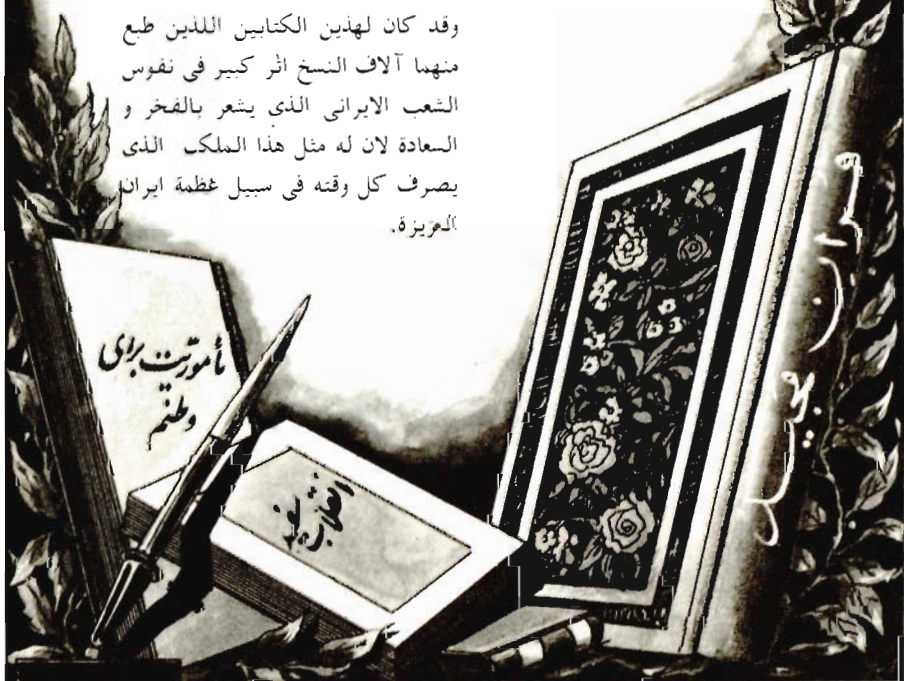 وقد كان لهذين الكتابين اللذين طبع
منهما آلاف النسخ اثر كبير فى نفوس
الشعب الايرانى الذى يشعر بالفخر و
السعادة لان له مثل هذا الملك الذى
يصرف كل وقته فى سبيل عظمة ايران
العزيزة.
مأموریت برای
وطنم
انقلاب سفید
قرآن مجید